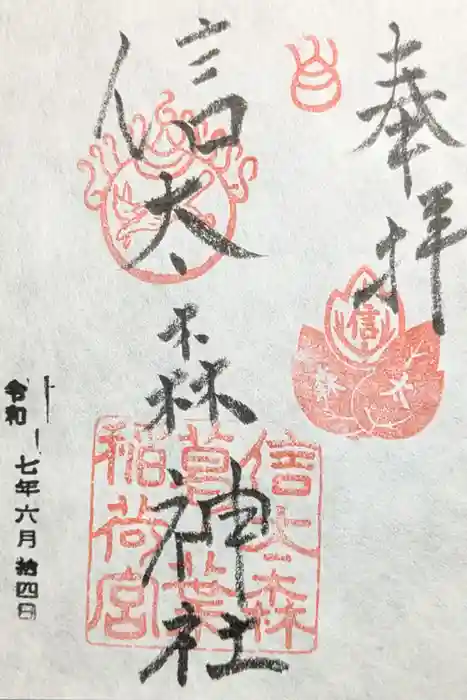 奉拝
信太森神社
信太森
葛葉
稲荷宮
信
太
森
令和
七年六月拾四日